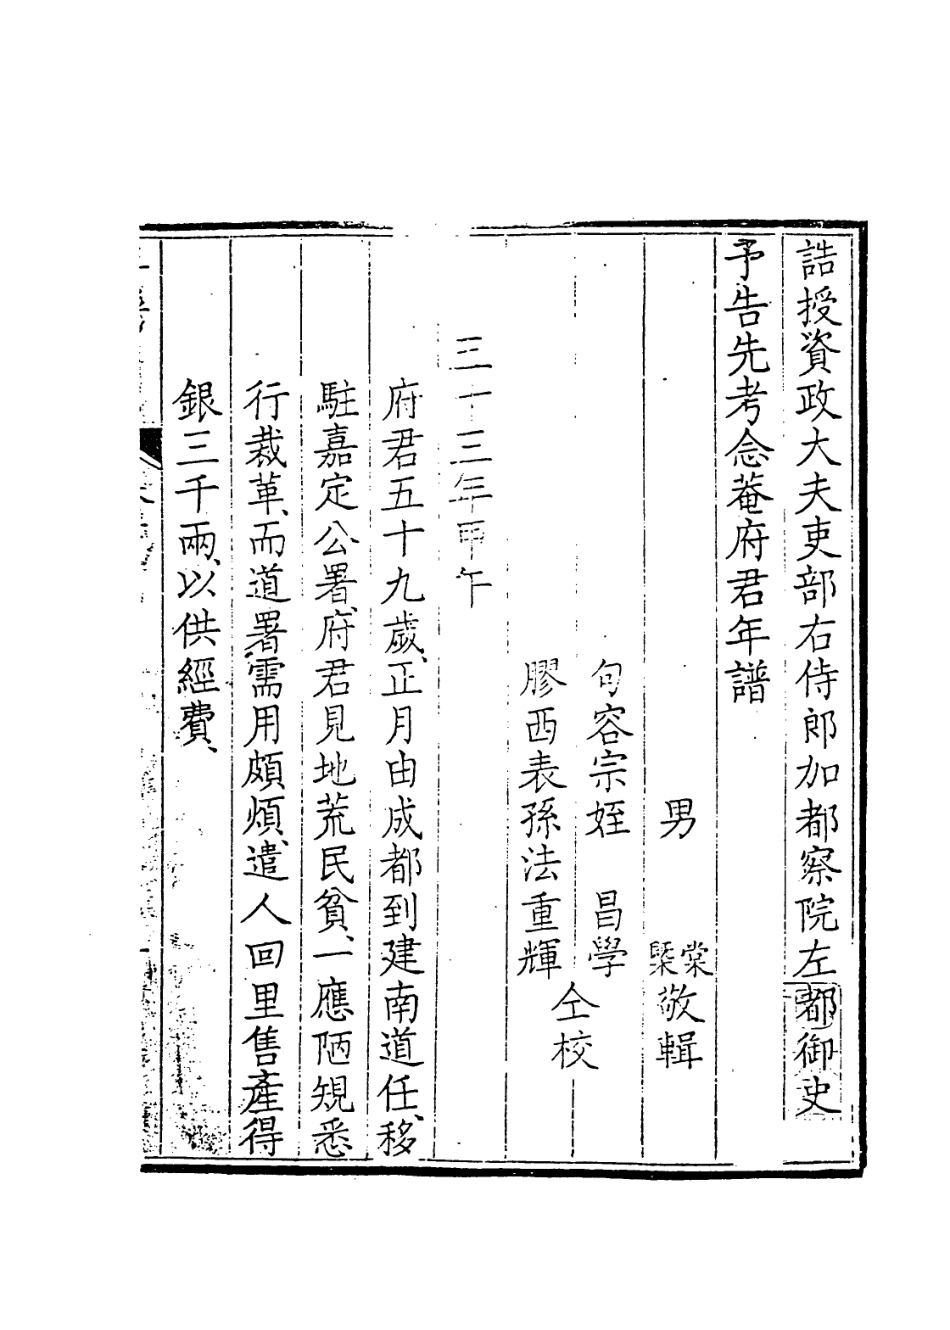 誥授資政大夫吏部右侍郎加都察院左都御史
予告先考念菴府君年譜
男 棠檠敬輯
句容宗姪 昌學
膠西表孫法重輝
仝校
三十三年甲午
府君五十九歲、正月由成都到建南道任、移
駐嘉定公署、府君見地荒民貧、一應陋規悉
行裁革、而道署需用頗煩、遣人回里售產得
銀三千兩、以供經費、